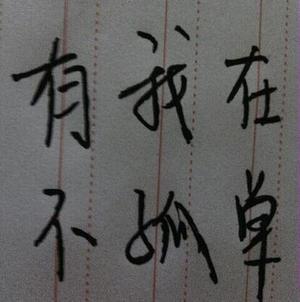 有我在
不孤单